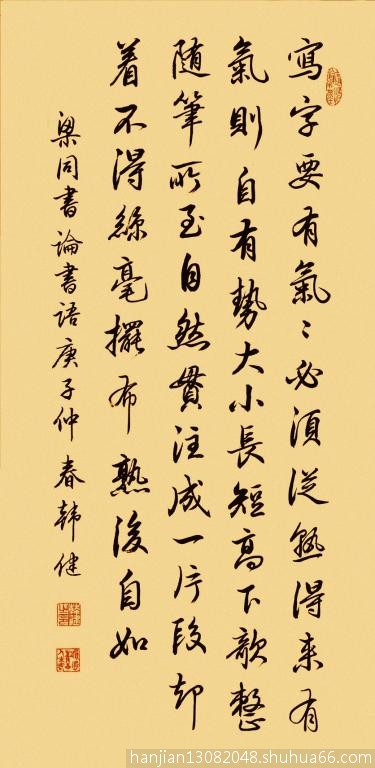 寫字要有氣〻必須從熟得来有
氣則自有勢大小長短高下欹整
随筆所至自然貫注成一片段却
着不得絲毫擺布熟後自如
梁同書論書語庚子仲春韩健
hanjian13082048.shuhua66.com